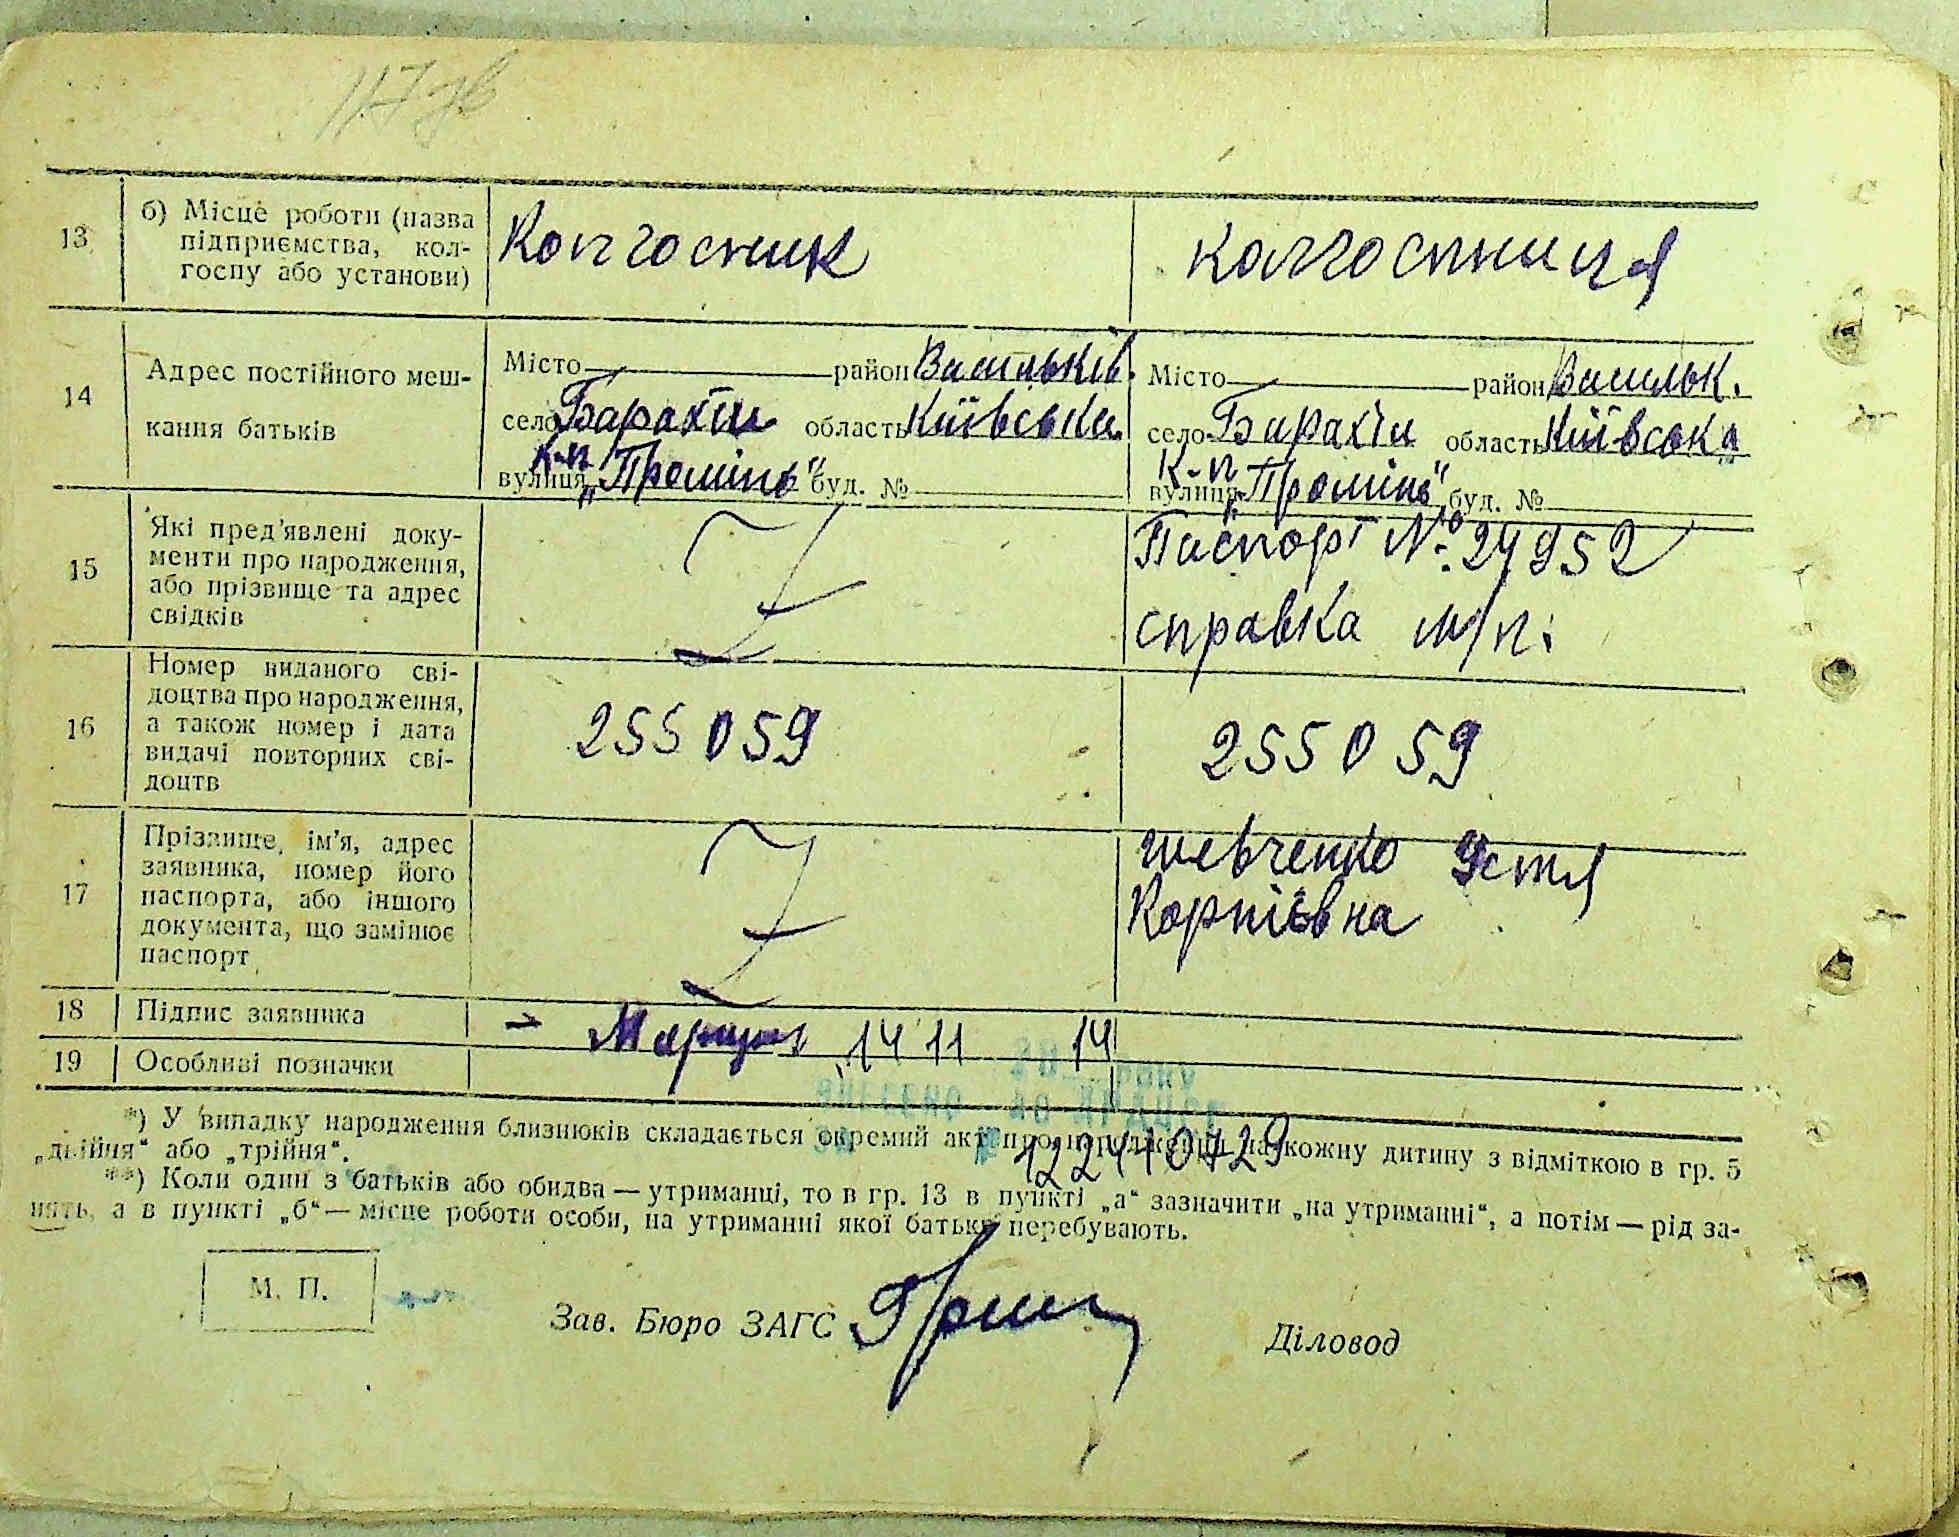 117 зв
13
б) Місце роботи (назва
підприємства, кол-
госпу або установи)
Колгосник
колгоспниця
14
Адрес постійного меш-
кання батьків
Місто район Васильків.
село Барахти область Київська
к-п
вулиця „Промінь“ буд. №
Місто район Васильк.
село Барахти область Київська
к-п
вулиця „Промінь“ буд. №
15
Які пред'явлені доку-
менти про народження,
або прізвище та адрес
свідків
Паспорт №
справка м/п.
16
Номер виданого сві-
доцтва про народження,
а також номер і дата
видачі повторних сві-
доцтв
255059
255059
17
Прізвище, ім'я, адрес
заявника, номер його
паспорта, або іншого
документа, що замінює
паспорт
Шевченко Устя
Корпіївна
18
Підпис заявника
19
Особливі позначки
14 11 14
*) У випадку народження близнюків складається окремий акт про народження на кожну дитину з відміткою в гр. 5
„двійня“ або „трійня“.
**) Коли один з батьків або обидва — утриманці, то в гр. 13 в пункті „а“ зазначити „на утриманні“, а потім — рід за-
нять, а в пункті „б“ — місце роботи особи, на утриманні якої батьки перебувають.
М. П.
Зав. Бюро ЗАГС
Діловод